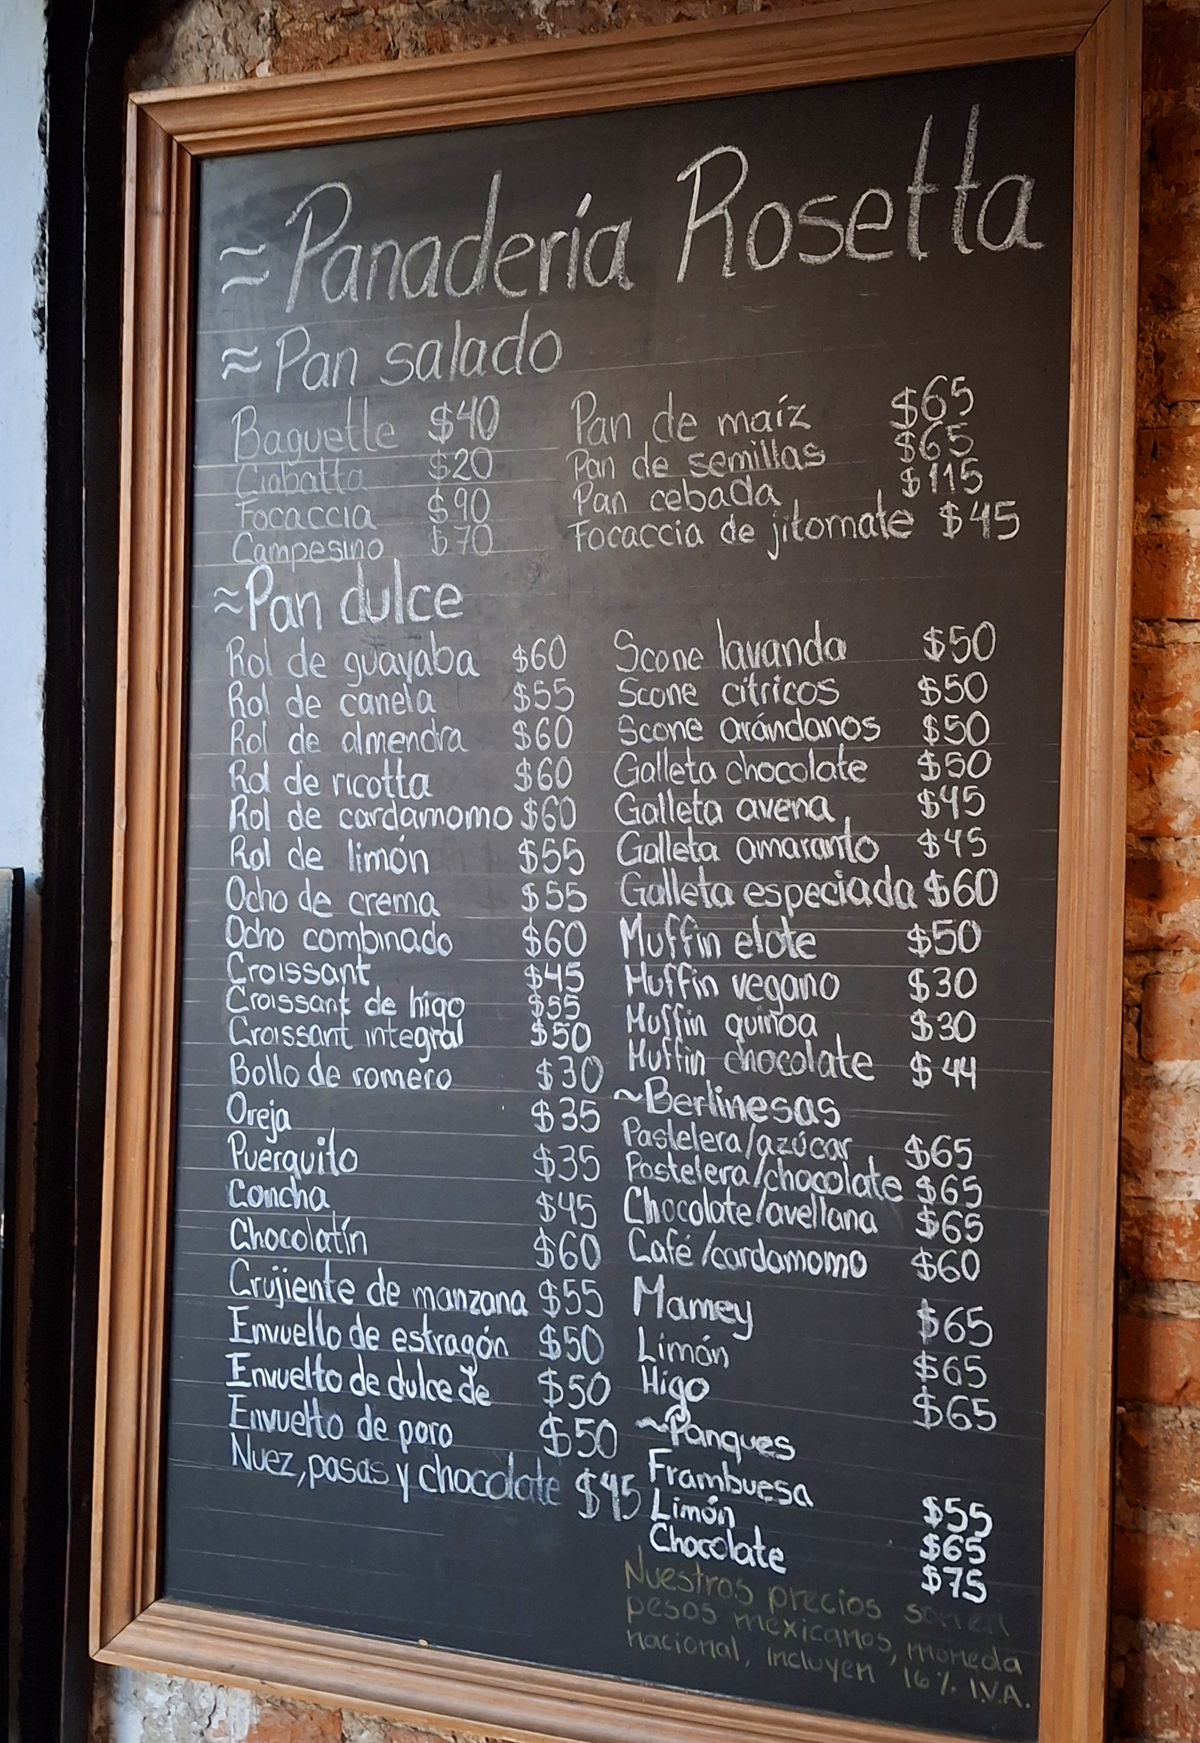 ≈ Panadería Rosetta
≈ Pan salado
Baguette $40
Ciabatta $20
Focaccia $90
Campesino $70
Pan de maíz $65
Pan de semillas $65
Pan cebada $115
Focaccia de jitomate $45
≈ Pan dulce
Rol de guayaba $60
Rol de canela $55
Rol de almendra $60
Rol de ricotta $60
Rol de cardamomo $60
Rol de limón $55
Ocho de crema $55
Ocho combinado $60
Croissant $45
Croissant de higo $55
Croissant integral $50
Bollo de romero $30
Oreja $35
Puerquito $35
Concha $45
Chocolatín $60
Crujiente de manzana $55
Envuelto de estragón $50
Envuelto de dulce de $50
Envuelto de poro $50
Nuez, pasas y chocolate $45
Scone lavanda $50
Scone cítricos $50
Scone arándanos $50
Galleta chocolate $50
Galleta avena $45
Galleta amaranto $45
Galleta especiada $60
Muffin elote $50
Muffin vegano $30
Muffin quinoa $30
Muffin chocolate $44
~ Berlinesas
Pastelera/azúcar $65
Pastelera/chocolate $65
Chocolate/avellana $65
Café/cardamomo $60
Mamey $65
Limón $65
Higo $65
~ Panques
Frambuesa $55
Limón $65
Chocolate $75
Nuestros precios son en
pesos mexicanos, moneda
nacional, incluyen 16% I.V.A.